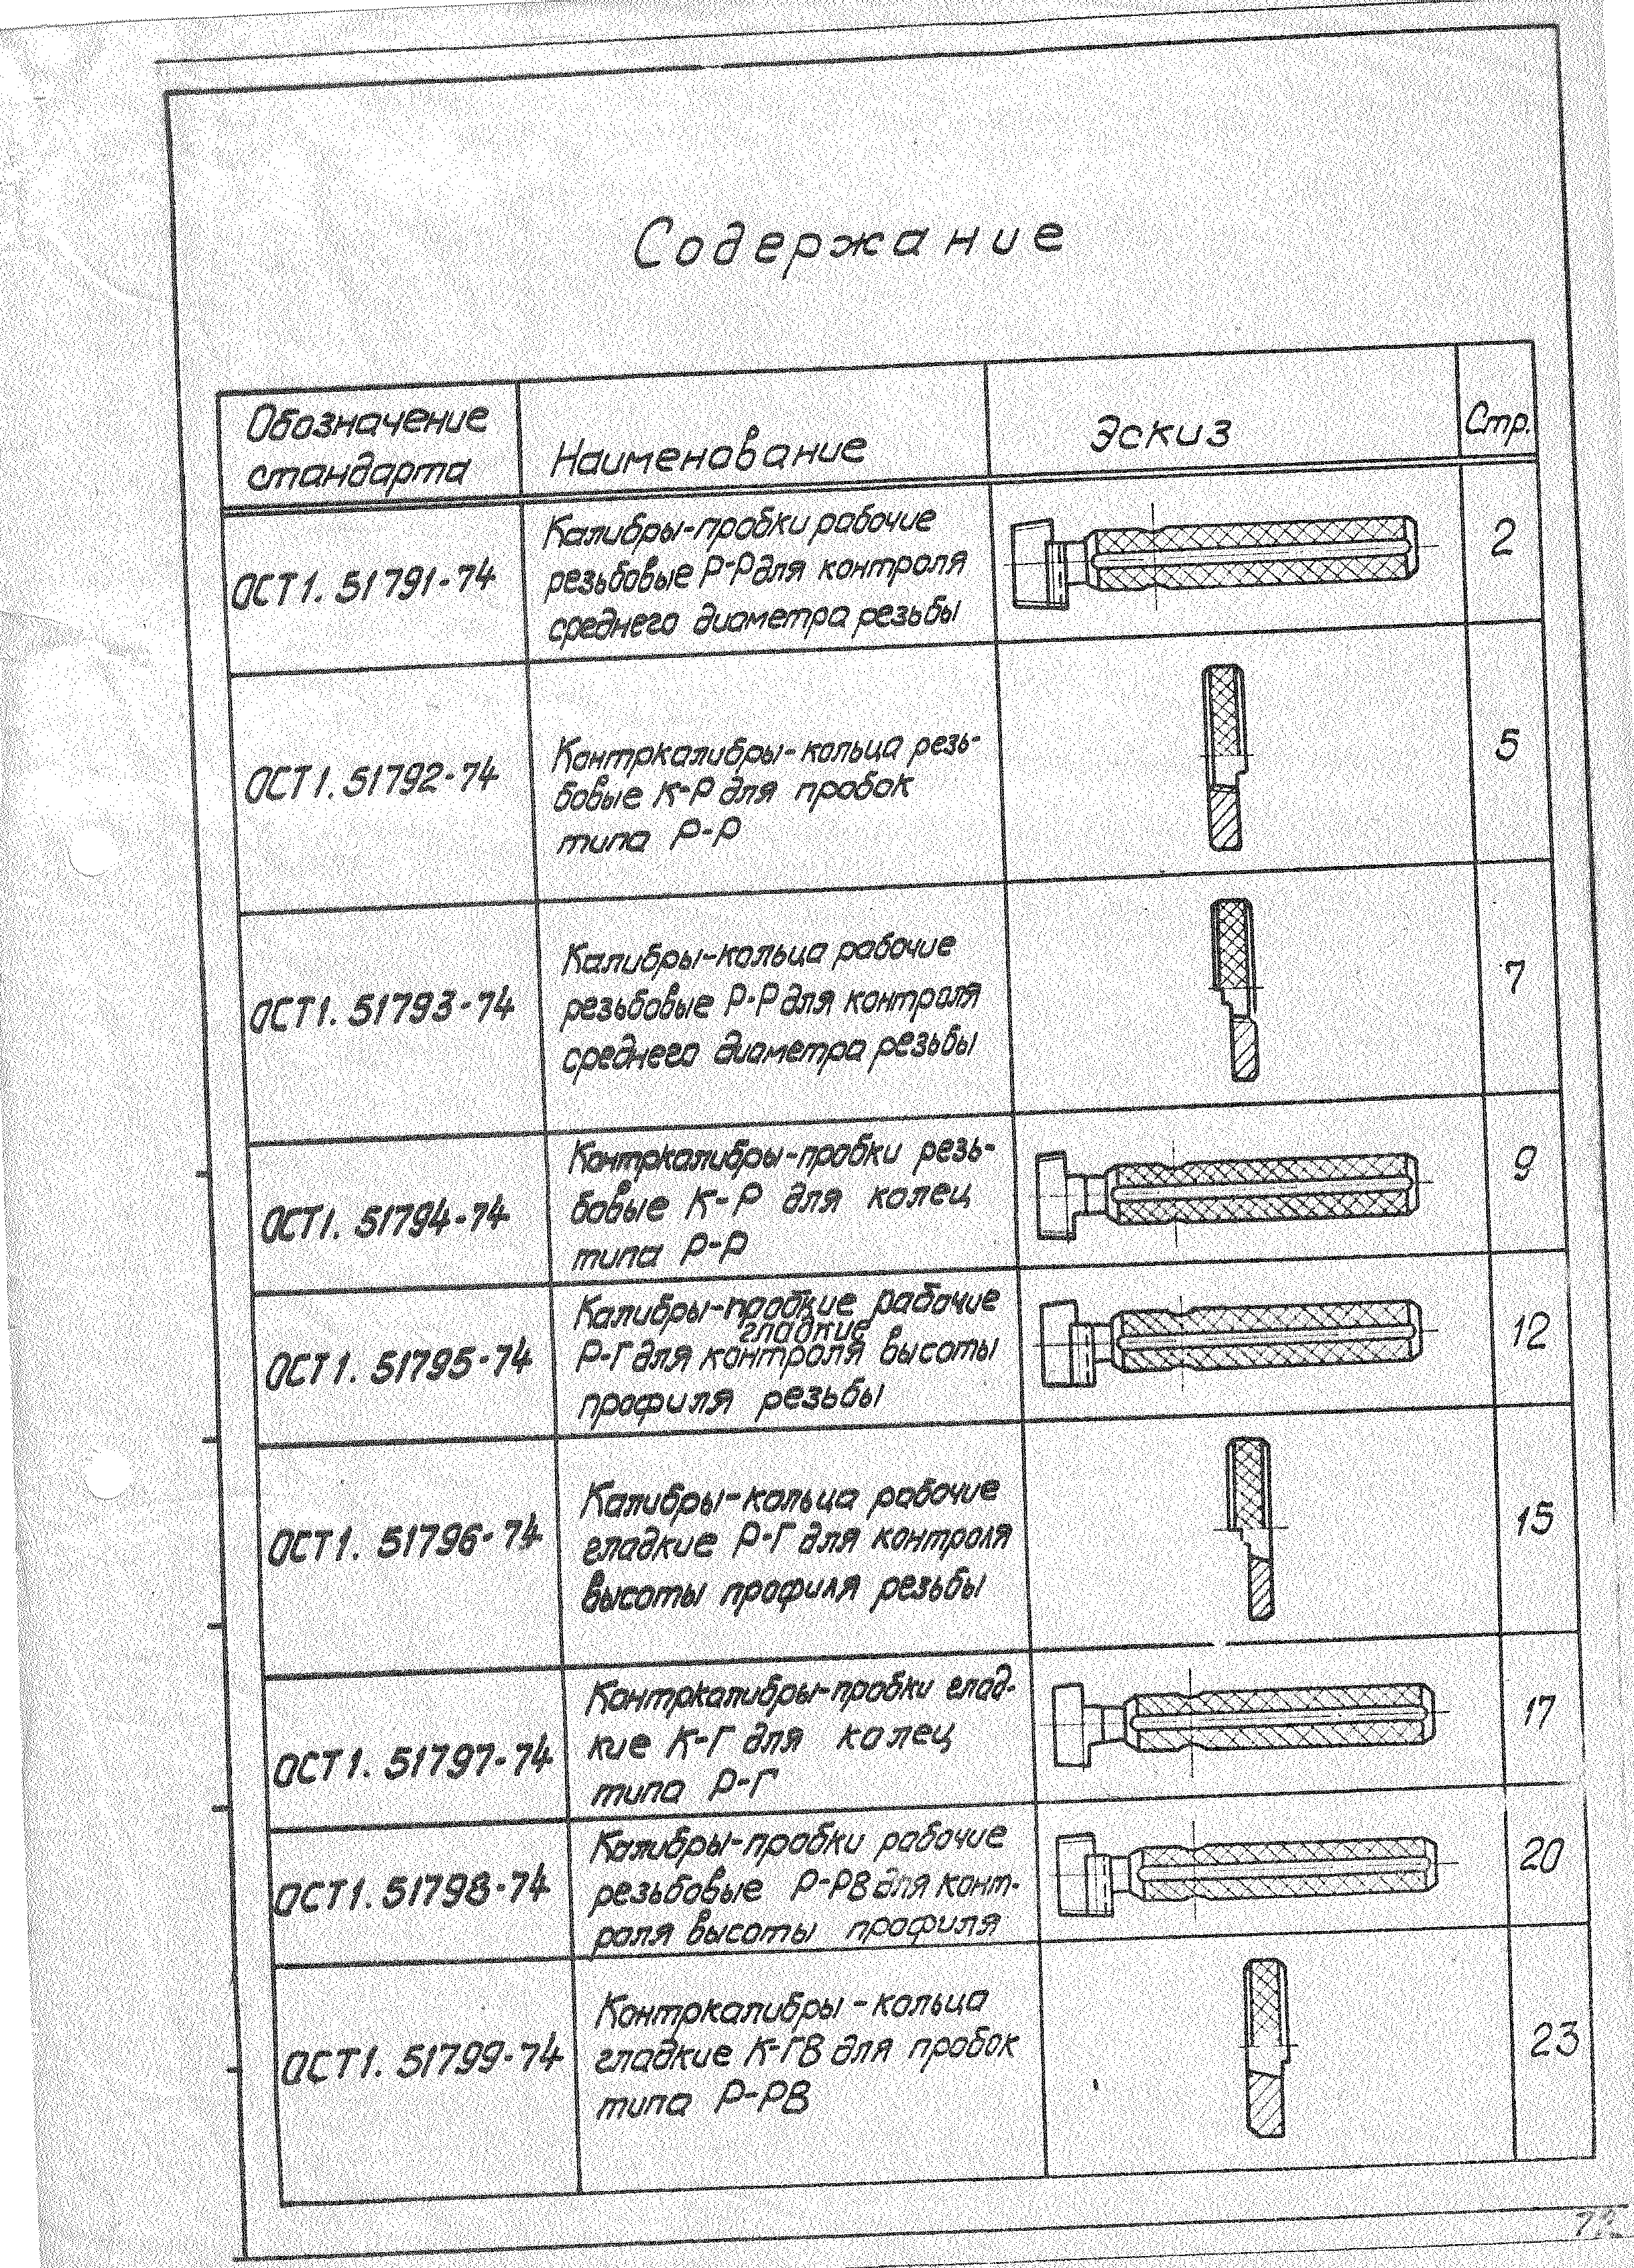 Содержание
Обозначение
стандарта
Наименование
Эскиз
Стр.
ОСТ1. 51791-74
Калибры-пробки рабочие
резьбовые Р-Р для контроля
среднего диаметра резьбы
2
ОСТ1. 51792-74
Контркалибры-кольца резь-
бовые К-Р для пробок
типа Р-Р
5
ОСТ1. 51793-74
Калибры-кольца рабочие
резьбовые Р-Р для контроля
среднего диаметра резьбы
7
ОСТ1. 51794-74
Контркалибры-пробки резь-
бовые К-Р для колец
типа Р-Р
9
ОСТ1. 51795-74
Калибры-пробкие рабочие
гладкие
Р-Г для контроля высоты
профиля резьбы
12
ОСТ1. 51796-74
Калибры-кольца рабочие
гладкие Р-Г для контроля
высоты профиля резьбы
15
ОСТ1. 51797-74
Контркалибры-пробки глад-
кие К-Г для колец
типа Р-Г
17
ОСТ1. 51798-74
Калибры-пробки рабочие
резьбовые Р-РВ для конт-
роля высоты профиля
20
ОСТ1. 51799-74
Контркалибры-кольца
гладкие К-ГВ для пробок
типа Р-РВ
23